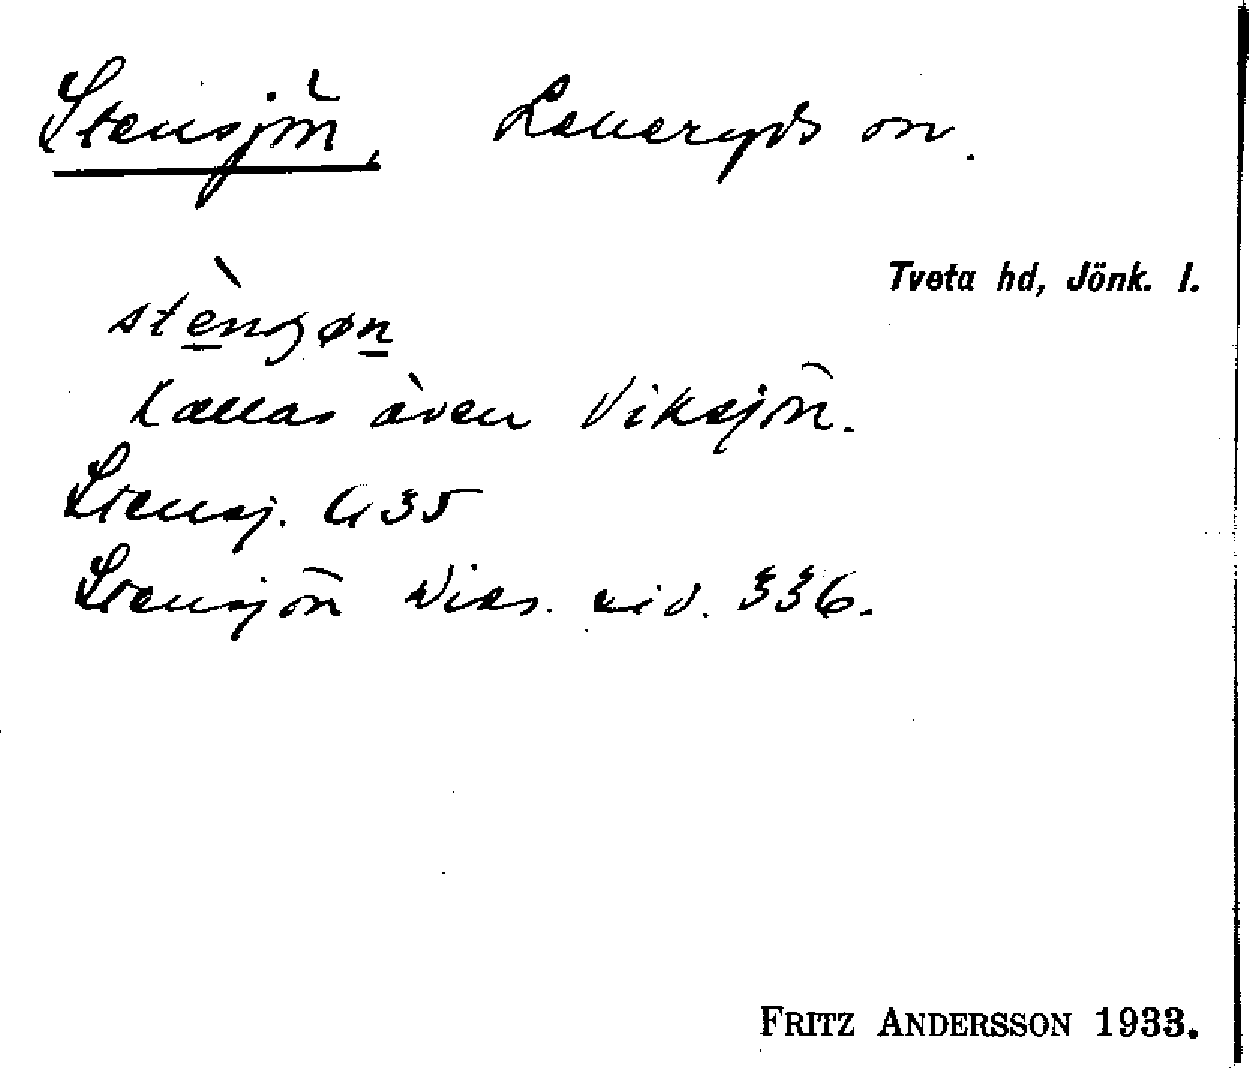 Stensjön, Lekeryds sn.
Tveta hd, Jönk. l.
Kallas även Viksjön.
Stensj. G 35
Stensjön Wies. sid. 336.
FRITZ ANDERSSON 1933.